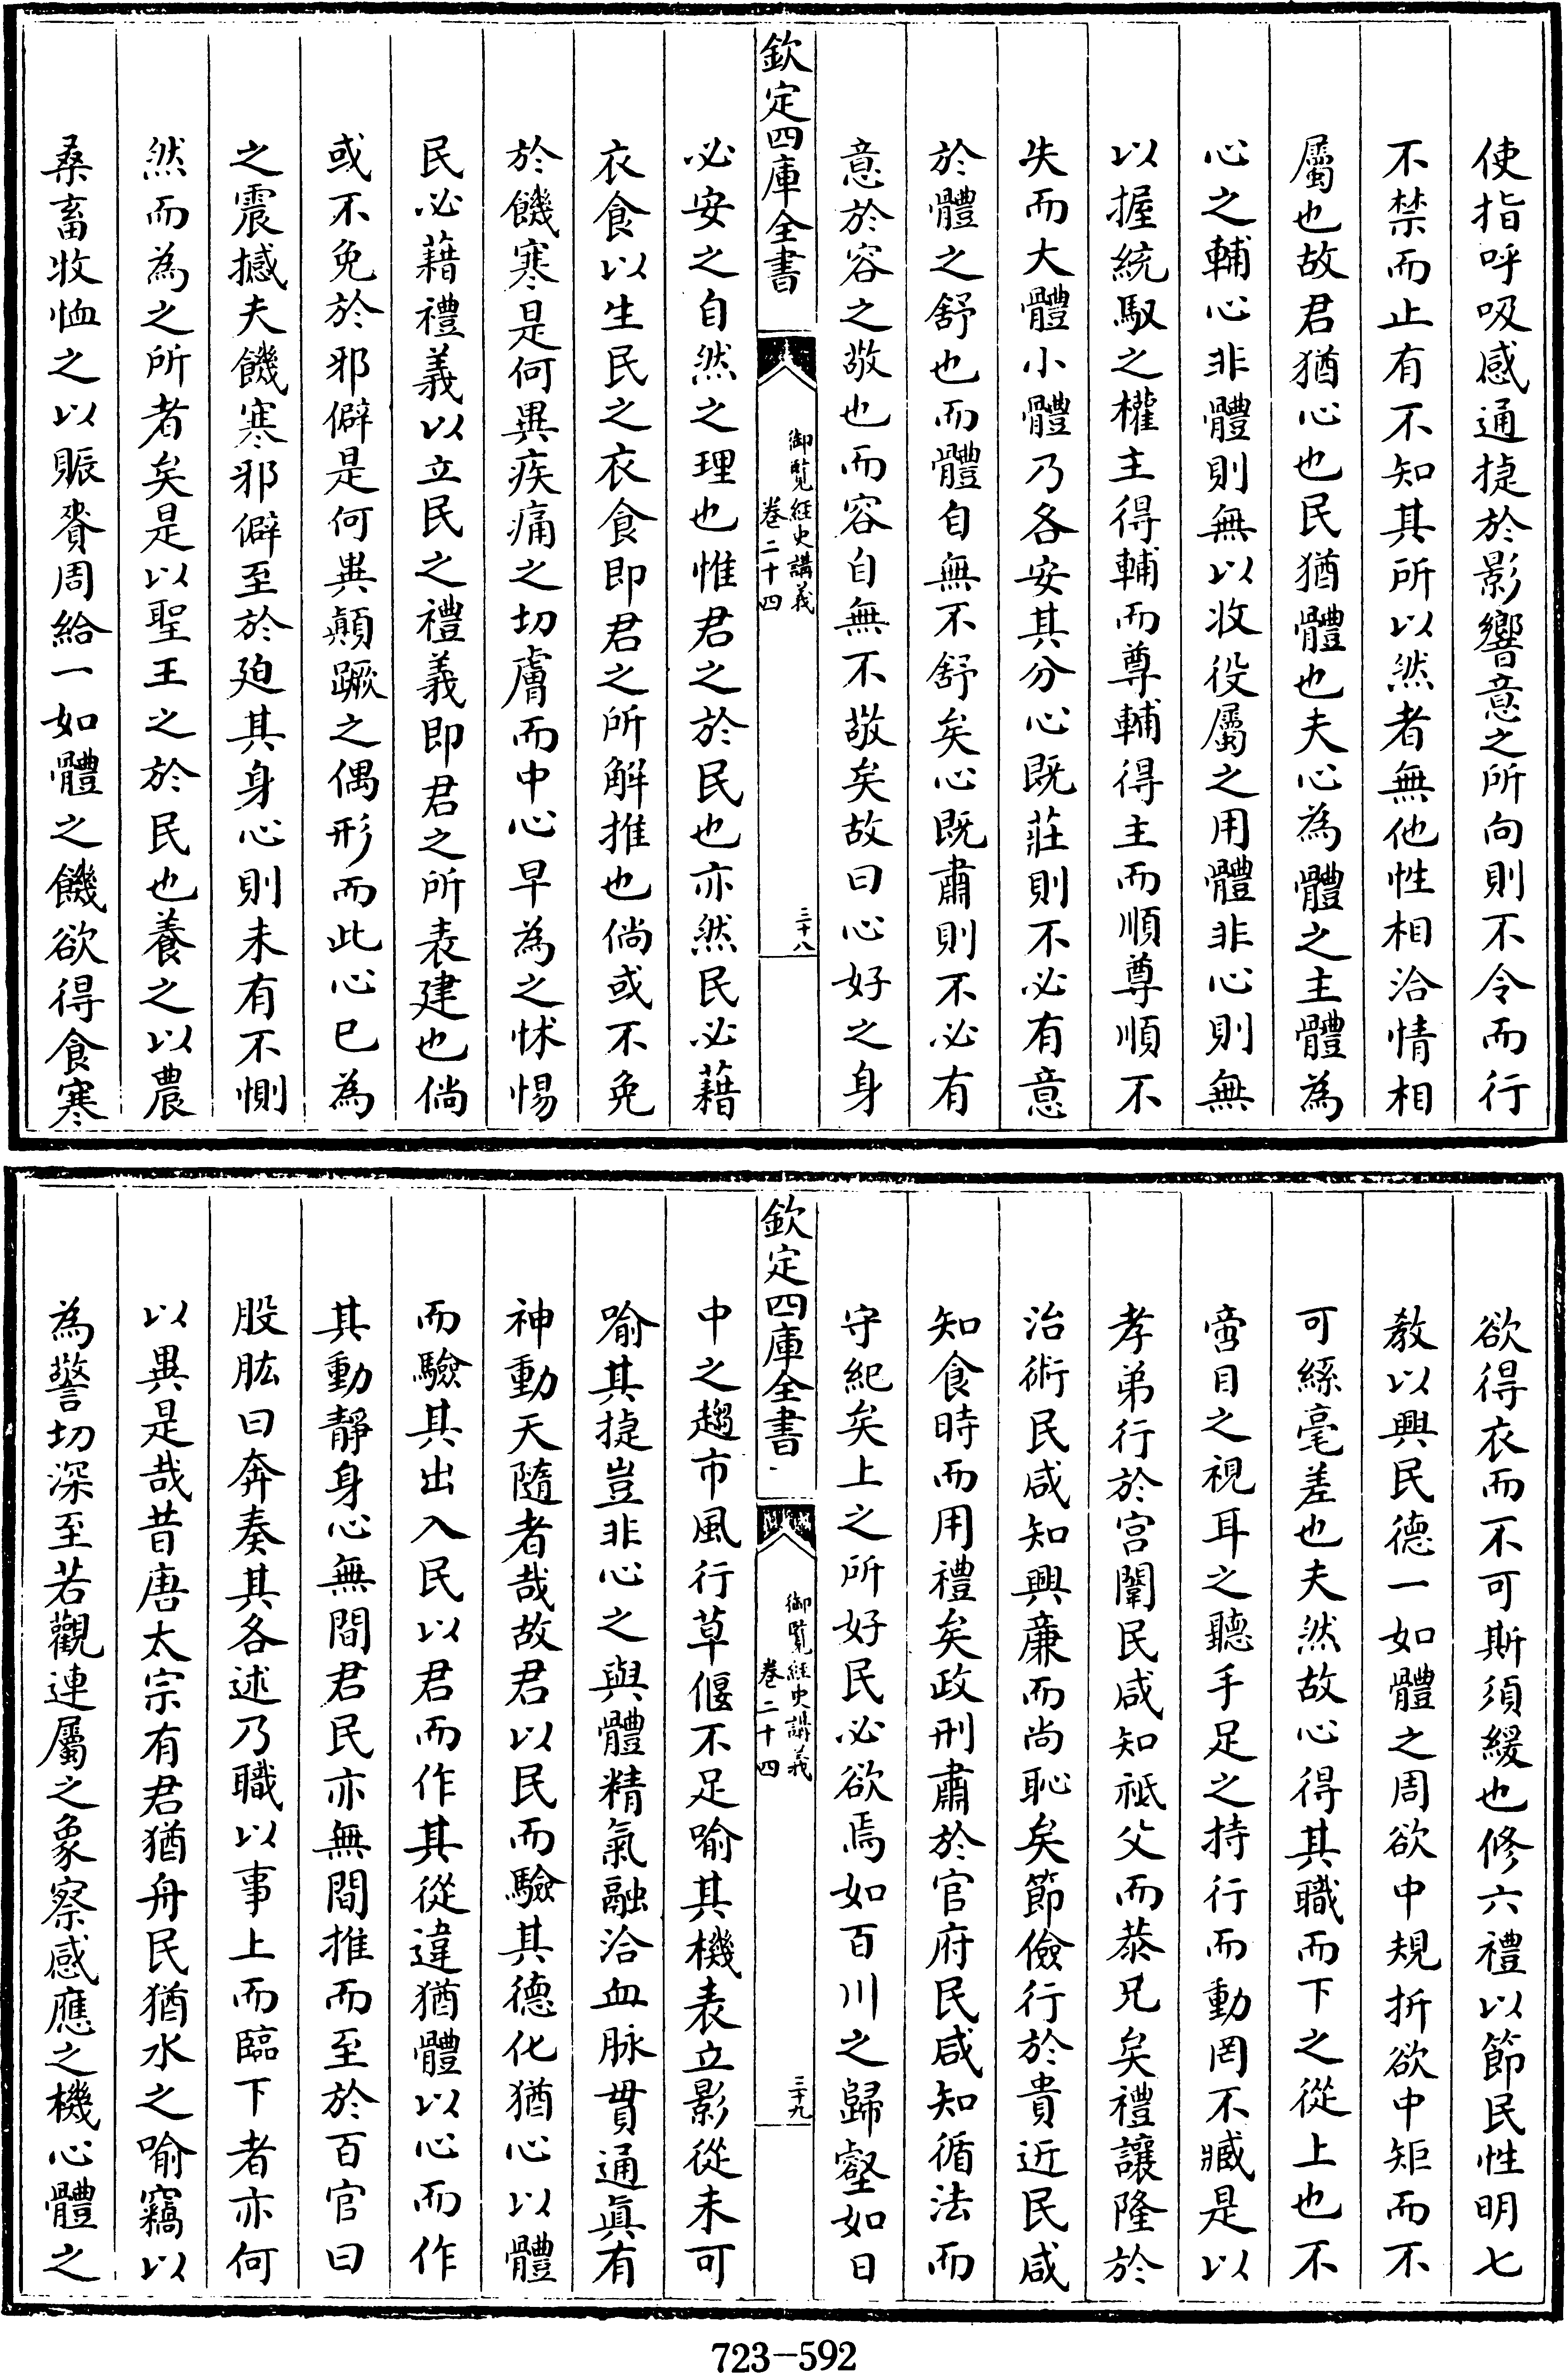 使指呼吸感通捷於影響意之所向則不令而行
不禁而止有不知其所以然者無他性相洽情相
屬也故君猶心也民猶體也夫心為體之主體為
心之輔心非體則無以收役屬之用體非心則無
以握統馭之權主得輔而尊輔得主而順尊順不
失而大體小體乃各安其分心既莊則不必有意
於體之舒也而體自無不舒矣心既肅則不必有
意於容之敬也而容自無不敬矣故曰心好之身
欽定四庫全書
御覽經史講義
卷二十四
三十八
必安之自然之理也惟君之於民也亦然民必藉
衣食以生民之衣食即君之所解推也倘或不免
於饑寒是何異疾痛之切膚而中心早為之怵惕
民必藉禮義以立民之禮義即君之所表建也倘
或不免於邪僻是何異顛蹶之偶形而此心已為
之震撼夫饑寒邪僻至於廹其身心則未有不惻
然而為之所者矣是以聖王之於民也養之以農
桑畜牧恤之以賑賚周給一如體之饑欲得食寒
欲得衣而不可斯須緩也修六禮以節民性明七
教以興民德一如體之周欲中規折欲中矩而不
可絲毫差也夫然故心得其職而下之從上也不
啻目之視耳之聽手足之持行而動罔不臧是以
孝弟行於宮闈民咸知祗父而恭兄矣禮讓隆於
治術民咸知興廉而尚恥矣節儉行於貴近民咸
知食時而用禮矣政刑肅於官府民咸知循法而
守紀矣上之所好民必欲焉如百川之歸壑如日
欽定四庫全書
御覽經史講義
卷二十四
三十九
中之趨市風行草偃不足喻其機表立影從未可
喻其捷豈非心之與體精氣融洽血脉貫通真有
神動天隨者哉故君以民而驗其德化猶心以體
而驗其出入民以君而作其從違猶體以心而作
其動靜身心無間君民亦無間推而至於百官曰
股肱曰奔奏其各述乃職以事上而臨下者亦何
以異是哉昔唐太宗有君猶舟民猶水之喻竊以
為警切深至若觀連屬之象察感應之機心體之
723-592